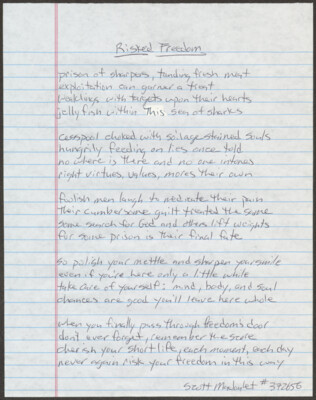 Risked Freedom
prison of sharpers, finding fresh meat
exploitation can garner a treat
weaklings with targets upon their hearts
jellyfish within this sea of sharks
cesspool choked with soilage stained souls
hungrily feeding on lies once told
no where is there and no one
right virtues, values, mores their own
foolish men laugh to their pain
their cumbersome guilt treated the same
some search for God and others lift weights
for some prison is their final fate
so polish your mettle and sharpen your smile
even if you're here only a little while
take care of yourself: mind, body, and soul
chances are good you'll leave here whole
when you finally pass through freedom's door
don't ever forget, remember the score
cherish your short life, each moment, each day
never again risk your freedom in this way
Scott #